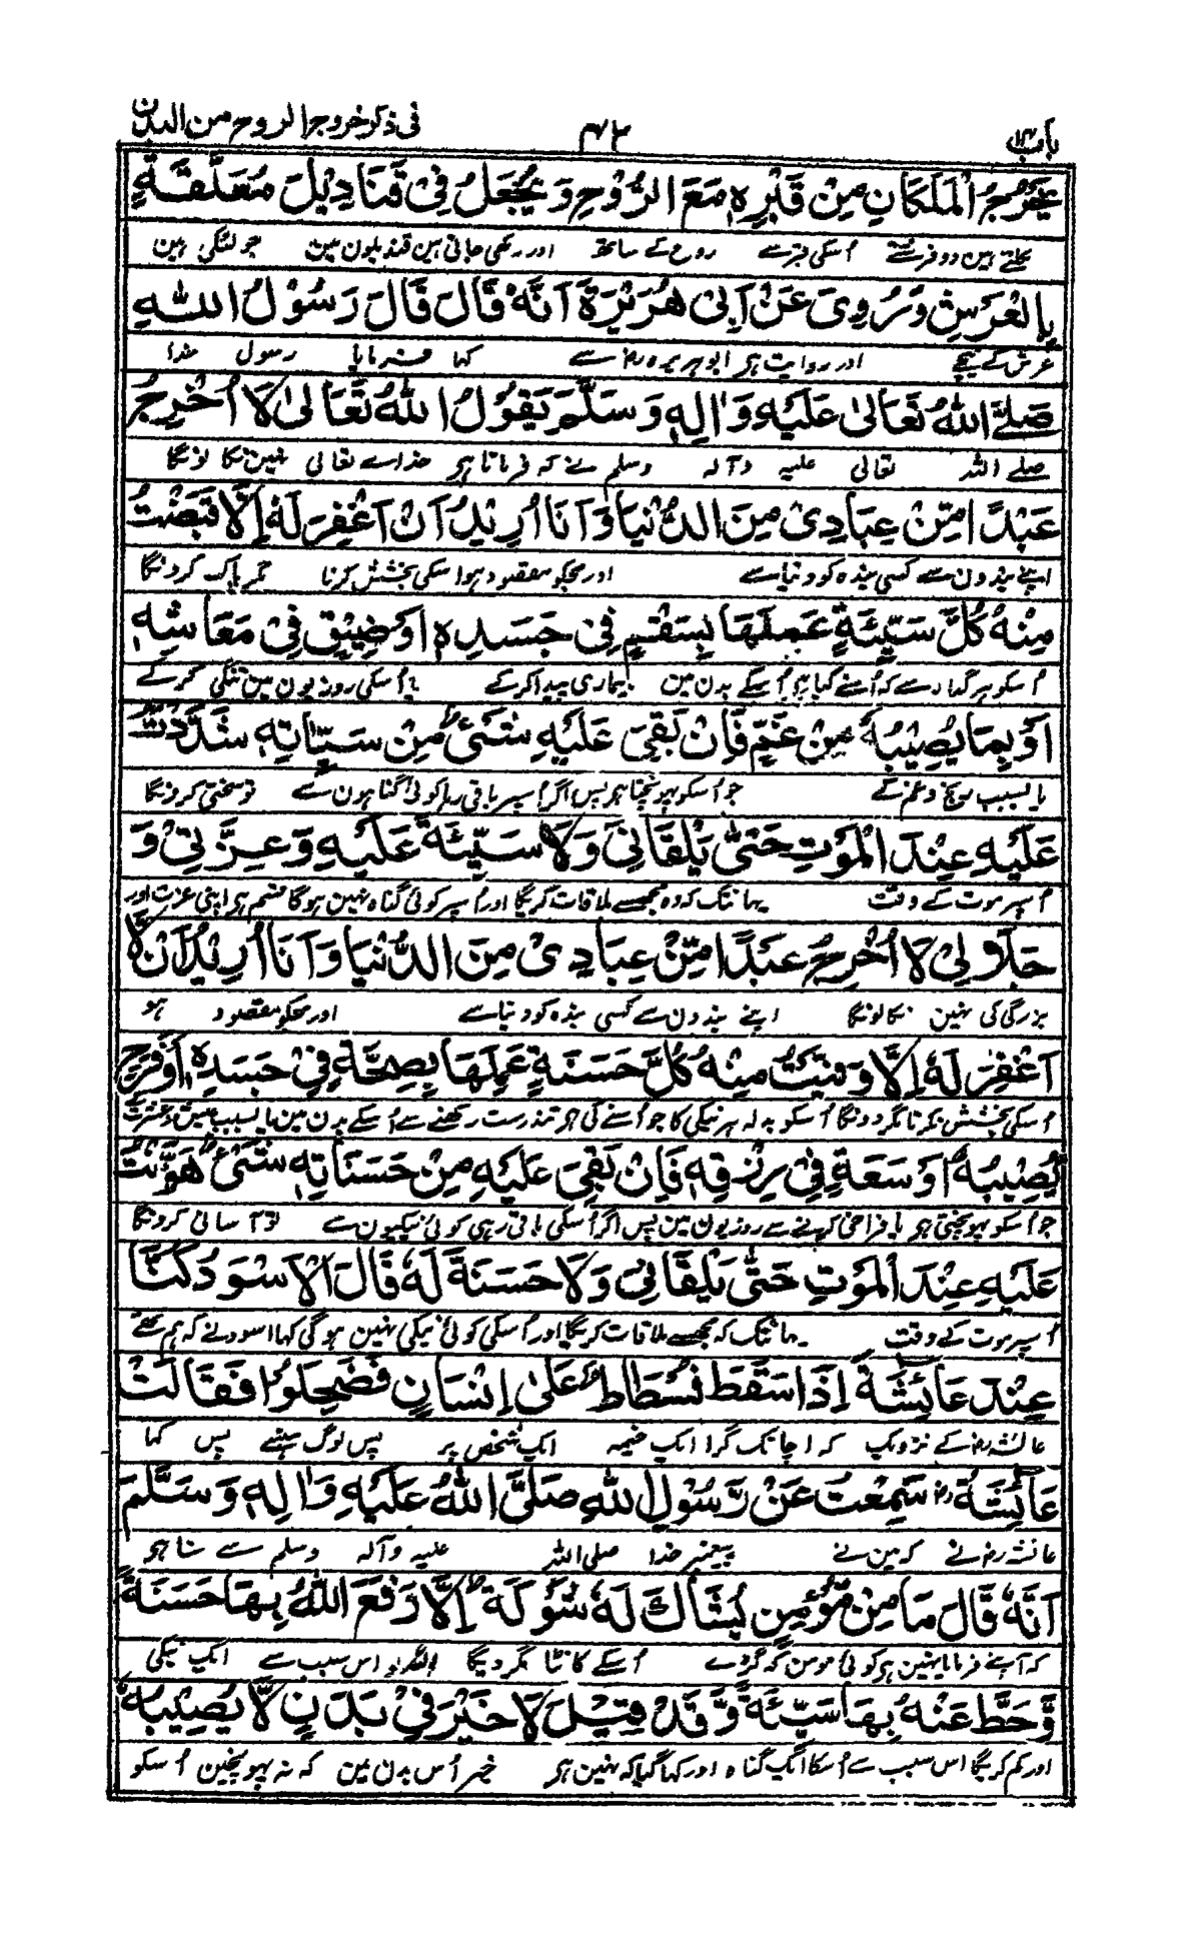 باب
في ذكر خروج الروح من البدن
يَخْرُجُ الْمَلَكَانِ مِنْ قَبْرِهٖ مَعَ الرُّوْحِ وَيُجْعَلُ فِيْ قَنَادِيْلَ مُعَلَّقَةٍ
نکلتے ہین دو فرشتے اُسکی قبر سے روح کے ساتھ اور رکھی جاتی ہین قندیلون مین جو لٹکی ہین
بِالْعَرْشِ وَرُوِيَ عَنْ اَبِيْ هُرَيْرَةَ اَنَّهٗ قَالَ قَالَ رَسُوْلُ اللهِ
عرش کے نیچے اور روایت ہی ابو ہریرہ رض سے کہا فرمایا رسول خدا
صَلَّے اللهُ تَعَالٰى عَلَيْهِ وَاٰلِهٖ وَسَلَّمَ يَقُوْلُ اللهُ تَعَالٰى لَا اُخْرِجُ
صلے اللہ تعالی علیہ وآلہ وسلم نے کہ فرماتا ہی خداے تعالی نہین نکالونگا
عَبْدًا مِّنْ عِبَادِيْ مِنَ الدُّنْيَا وَاَنَا اُرِيْدُ اَنْ اَغْفِرَ لَهٗ اِلَّا قَبَضْتُ
اپنے بندون سے کسی بندہ کو دنیا سے اور مجکو مقصود ہو اسکی بخشش کرنا مگر پاک کردونگا
مِنْهُ كُلَّ سَيِّئَةٍ عَمِلَهَا بِسَقَمٍ فِيْ جَسَدِهٖ اَوْ ضِيْقٍ فِيْ مَعَاشِهٖ
اُسکو ہر گناہ سے کہ اُسنے کیا ہی اُسکے بدن مین بیماری پیدا کرکے یا اُسکی روزیون مین تنگی کرکے
اَوْ بِمَا يُصِيْبُهٗ مِنْ غَمٍّ فَاِنْ بَقِيَ عَلَيْهِ شَيْءٌ مِنْ سَيِّاٰتِهٖ شَدَّدْتُ
یا بسبب رنج و غم کے جو اُسکو پہونچتا ہی پس اگر اُسپر باقی رہا کوئی گناہون سے تو سختی کرونگا
عَلَيْهِ عِنْدَ الْمَوْتِ حَتّٰى يَلْقَانِيْ وَلَا سَيِّئَةَ عَلَيْهِ وَعِزَّتِيْ وَ
اُسپر موت کے وقت یہانتک کہ وہ مجھسے ملاقات کریگا اور اُسپر کوئی گناہ نہین ہوگا قسم ہی اپنی عزت اور
جَلَالِيْ لَا اُخْرِجُ عَبْدًا مِّنْ عِبَادِيْ مِنَ الدُّنْيَا وَاَنَا اُرِيْدُ اَنْ لَّا
بزرگی کی نہین نکالونگا اپنے بندون سے کسی بندہ کو دنیا سے اور مجکو مقصود ہو
اَغْفِرَ لَهٗ اِلَّا وَفَّيْتُ مِنْهُ كُلَّ حَسَنَةٍ عَمِلَهَا بِصِحَّةٍ فِيْ جَسَدِهٖ اَوْ فَرَحٍ
اُسکی بخشش نکرنا مگر دونگا اُسکو بدلہ ہر نیکی کا جو اُسنے کی ہی تندرست رکھنے سے اُسکے بدن مین یا بسبب عیش و عشرت
يُصِيْبُهٗ اَوْ سَعَةٍ فِيْ رِزْقِهٖ فَاِنْ بَقِيَ عَلَيْهِ مِنْ حَسَنَاتِهٖ شَيْءٌ هَوَّنْتُ
جو اُسکو پہونچتی ہی یا فراخی کرنے سے روزیون مین پس اگر اُسکی باقی رہی کوئی نیکیون سے تو آسانی کرونگا
عَلَيْهِ عِنْدَ الْمَوْتِ حَتّٰى يَلْقَانِيْ وَلَا حَسَنَةَ لَهٗ قَالَ الْاَسْوَدُ كُنَّا
اُسپر موت کے وقت یہانتک کہ مجھسے ملاقات کریگا اور اُسکی کوئی نیکی نہین ہوگی کہا اسود نے کہ ہم تھے
عِنْدَ عَائِشَةَ اِذَا سَقَطَ فُسْطَاطٌ عَلٰى اِنْسَانٍ فَضَحِكُوْا فَقَالَتْ
عائشہ رض کے نزدیک کہ اچانک گرا ایک خیمہ ایک شخص پر پس لوگ ہنسے پس کہا
عَائِشَةُ رض سَمِعْتُ عَنْ رَّسُوْلِ اللهِ صَلَّى اللهُ عَلَيْهِ وَاٰلِهٖ وَسَلَّمَ
عائشہ رض نے کہ مین نے پیغمبر خدا صلی اللہ علیہ وآلہ وسلم سے سنا ہی
اَنَّهٗ قَالَ مَا مِنْ مُّؤْمِنٍ يُشَاكُ لَهٗ شَوْكَةٌ اِلَّا رَفَعَ اللهُ بِهَا حَسَنَةً
کہ آپنے فرمایا نہین ہی کوئی مومن کہ گڑے اُسکے کانٹا مگر دیگا اللہ اس سبب سے ایک نیکی
وَّحَطَّ عَنْهُ بِهَا سَيِّئَةً وَّقَدْ قِيْلَ لَا خَيْرَ فِيْ بَدَنٍ لَّا يُصِيْبُهُ
اور کم کریگا اس سبب سے اُسکا ایک گناہ اور کہا گیا کہ نہین ہی خیر اُس بدن مین کہ نہ پہونچین اُسکو